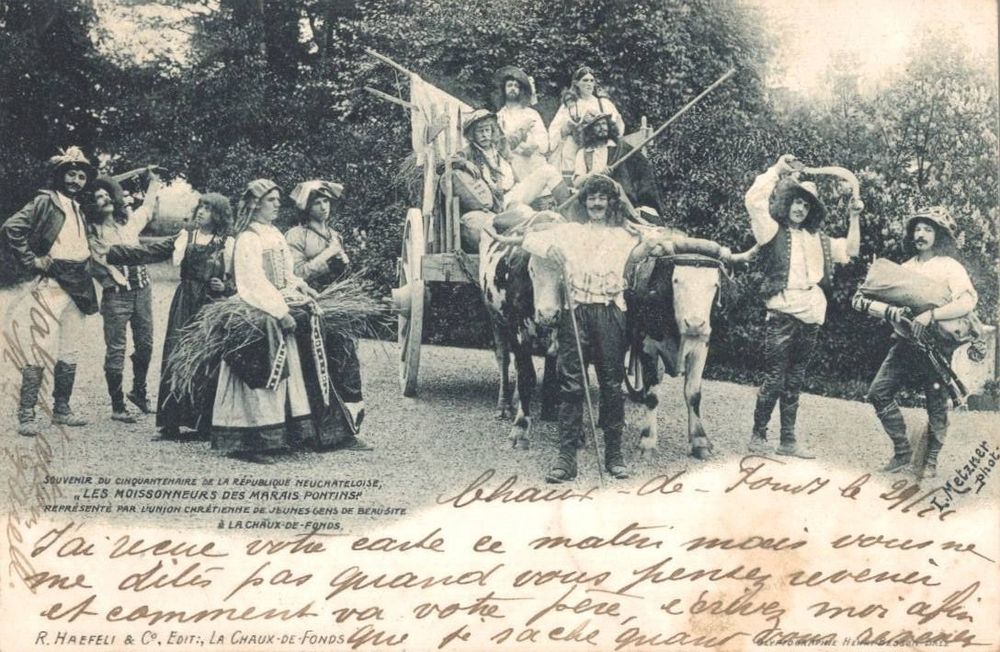 SOUVENIR DU CINQUANTENAIRE DE LA RÉPUBLIQUE NEUCHATELOISE,
„LES MOISSONNEURS DES MARAIS PONTINS"
REPRÉSENTÉ PAR L'UNION CHRÉTIENNE DE JEUNES GENS DE BEAUSITE
À LA CHAUX-DE-FONDS.
I. Metzner
phot.
Chaux-de-Fonds le 29/
J'ai recue votre carte ce matin mais vous ne
me dites pas quand vous pensez revenir
et comment va votre père, ecrivez moi afin
que je sache quand vous revenez
R. HAEFELI & Cº, EDIT:, LA CHAUX-DE-FONDS
GLYPTOGRAPHIE HENRI BESSON BÂLE